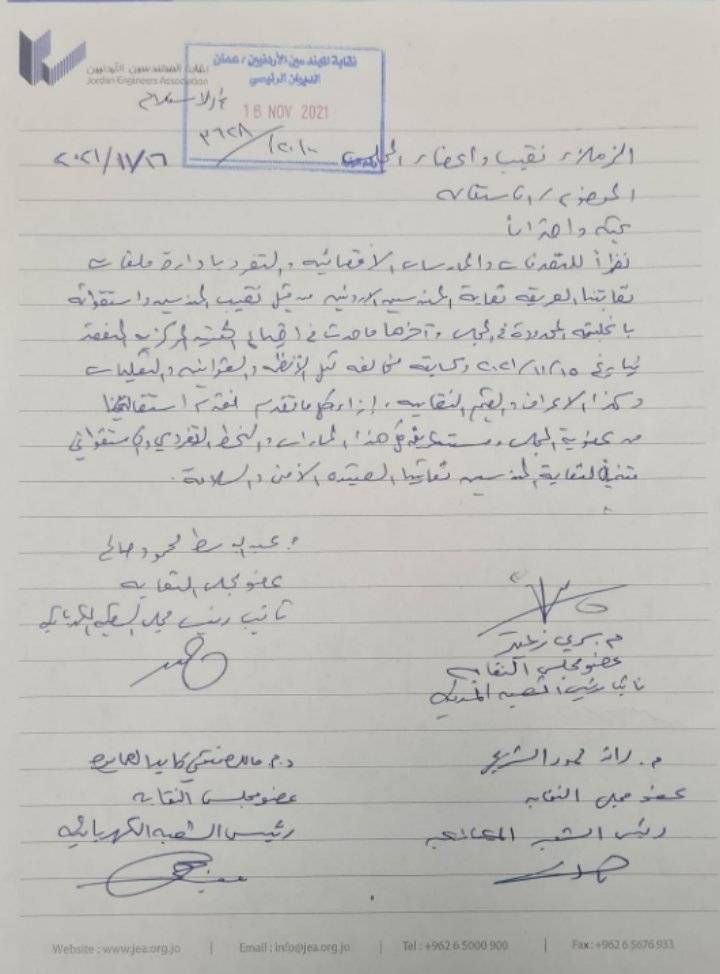 نقابة المهندسين الأردنيين
Jordan Engineers Association
نقابة المهندسين الأردنيين / عمان
الديوان الرئيسي
16 NOV 2021
٣٦٢٨
الزملاء نقيب واعضاء المجلس
٢٠٢١/١١/١٦
الموضوع / استقالة
تحية واحتراماً
نظراً للتصرفات والممارسات الاقصائية والتفرد بادارة ملفات
نقابتنا العريقة نقابة المهندسين الاردنيين من قبل نقيب المهندسين واستقوائه
باغلبيته المحدودة في المجلس وآخرها ما حدث في اجتماع الهيئة المركزية المنعقدة
بتاريخ ٢٠٢١/١١/١٥ ومخالفة كل الأنظمة والقوانين والتعليمات
وكذا الاعراف والقيم النقابية، إزاء كل ما تقدم نتقدم استقالتنا
من عضوية المجلس هذا النهج التفردي والاستقوائي
لنقابة المهندسين نقابتنا العتيدة الأمن والسلامة.
م. عبد الباسط محمود صالح
عضو مجلس النقابة
نائب رئيس مجلس الشعبة الكهربائية
م. سري زعيتر
عضو مجلس النقابة
نائب رئيس الشعبة المدنية
م. رائد الشربجي
عضو مجلس النقابة
رئيس الشعبة
د.م مالك
عضو مجلس النقابة
رئيس الشعبة الكهربائية
Website : www.jea.org.jo | Email : info@jea.org.jo | Tel : +962 6 5000 900 | Fax : +962 6 5676 933